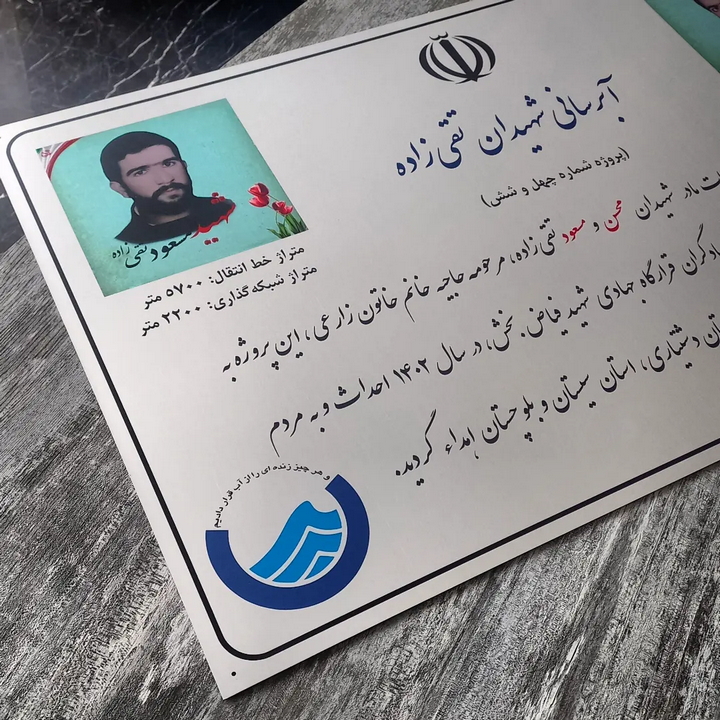 آبرسانی شهیدان تقی‌زاده
(پروژه شماره چهل و شش)
شهید مسعود تقی‌زاده
متراژ خط انتقال: ۵۷۰۰ متر
متراژ شبکه‌گذاری: ۲۲۰۰ متر
مادر شهیدان محسن و مسعود تقی‌زاده، مرحومه حاجیه خانم خاتون زارعی، این پروژه به
قرارگاه جهادی شهید فیاض‌بخش، در سال ۱۴۰۲ احداث و به مردم
دشتیاری، استان سیستان و بلوچستان اهداء گردید.
و هر چیز زنده ای را از آب قرار دادیم